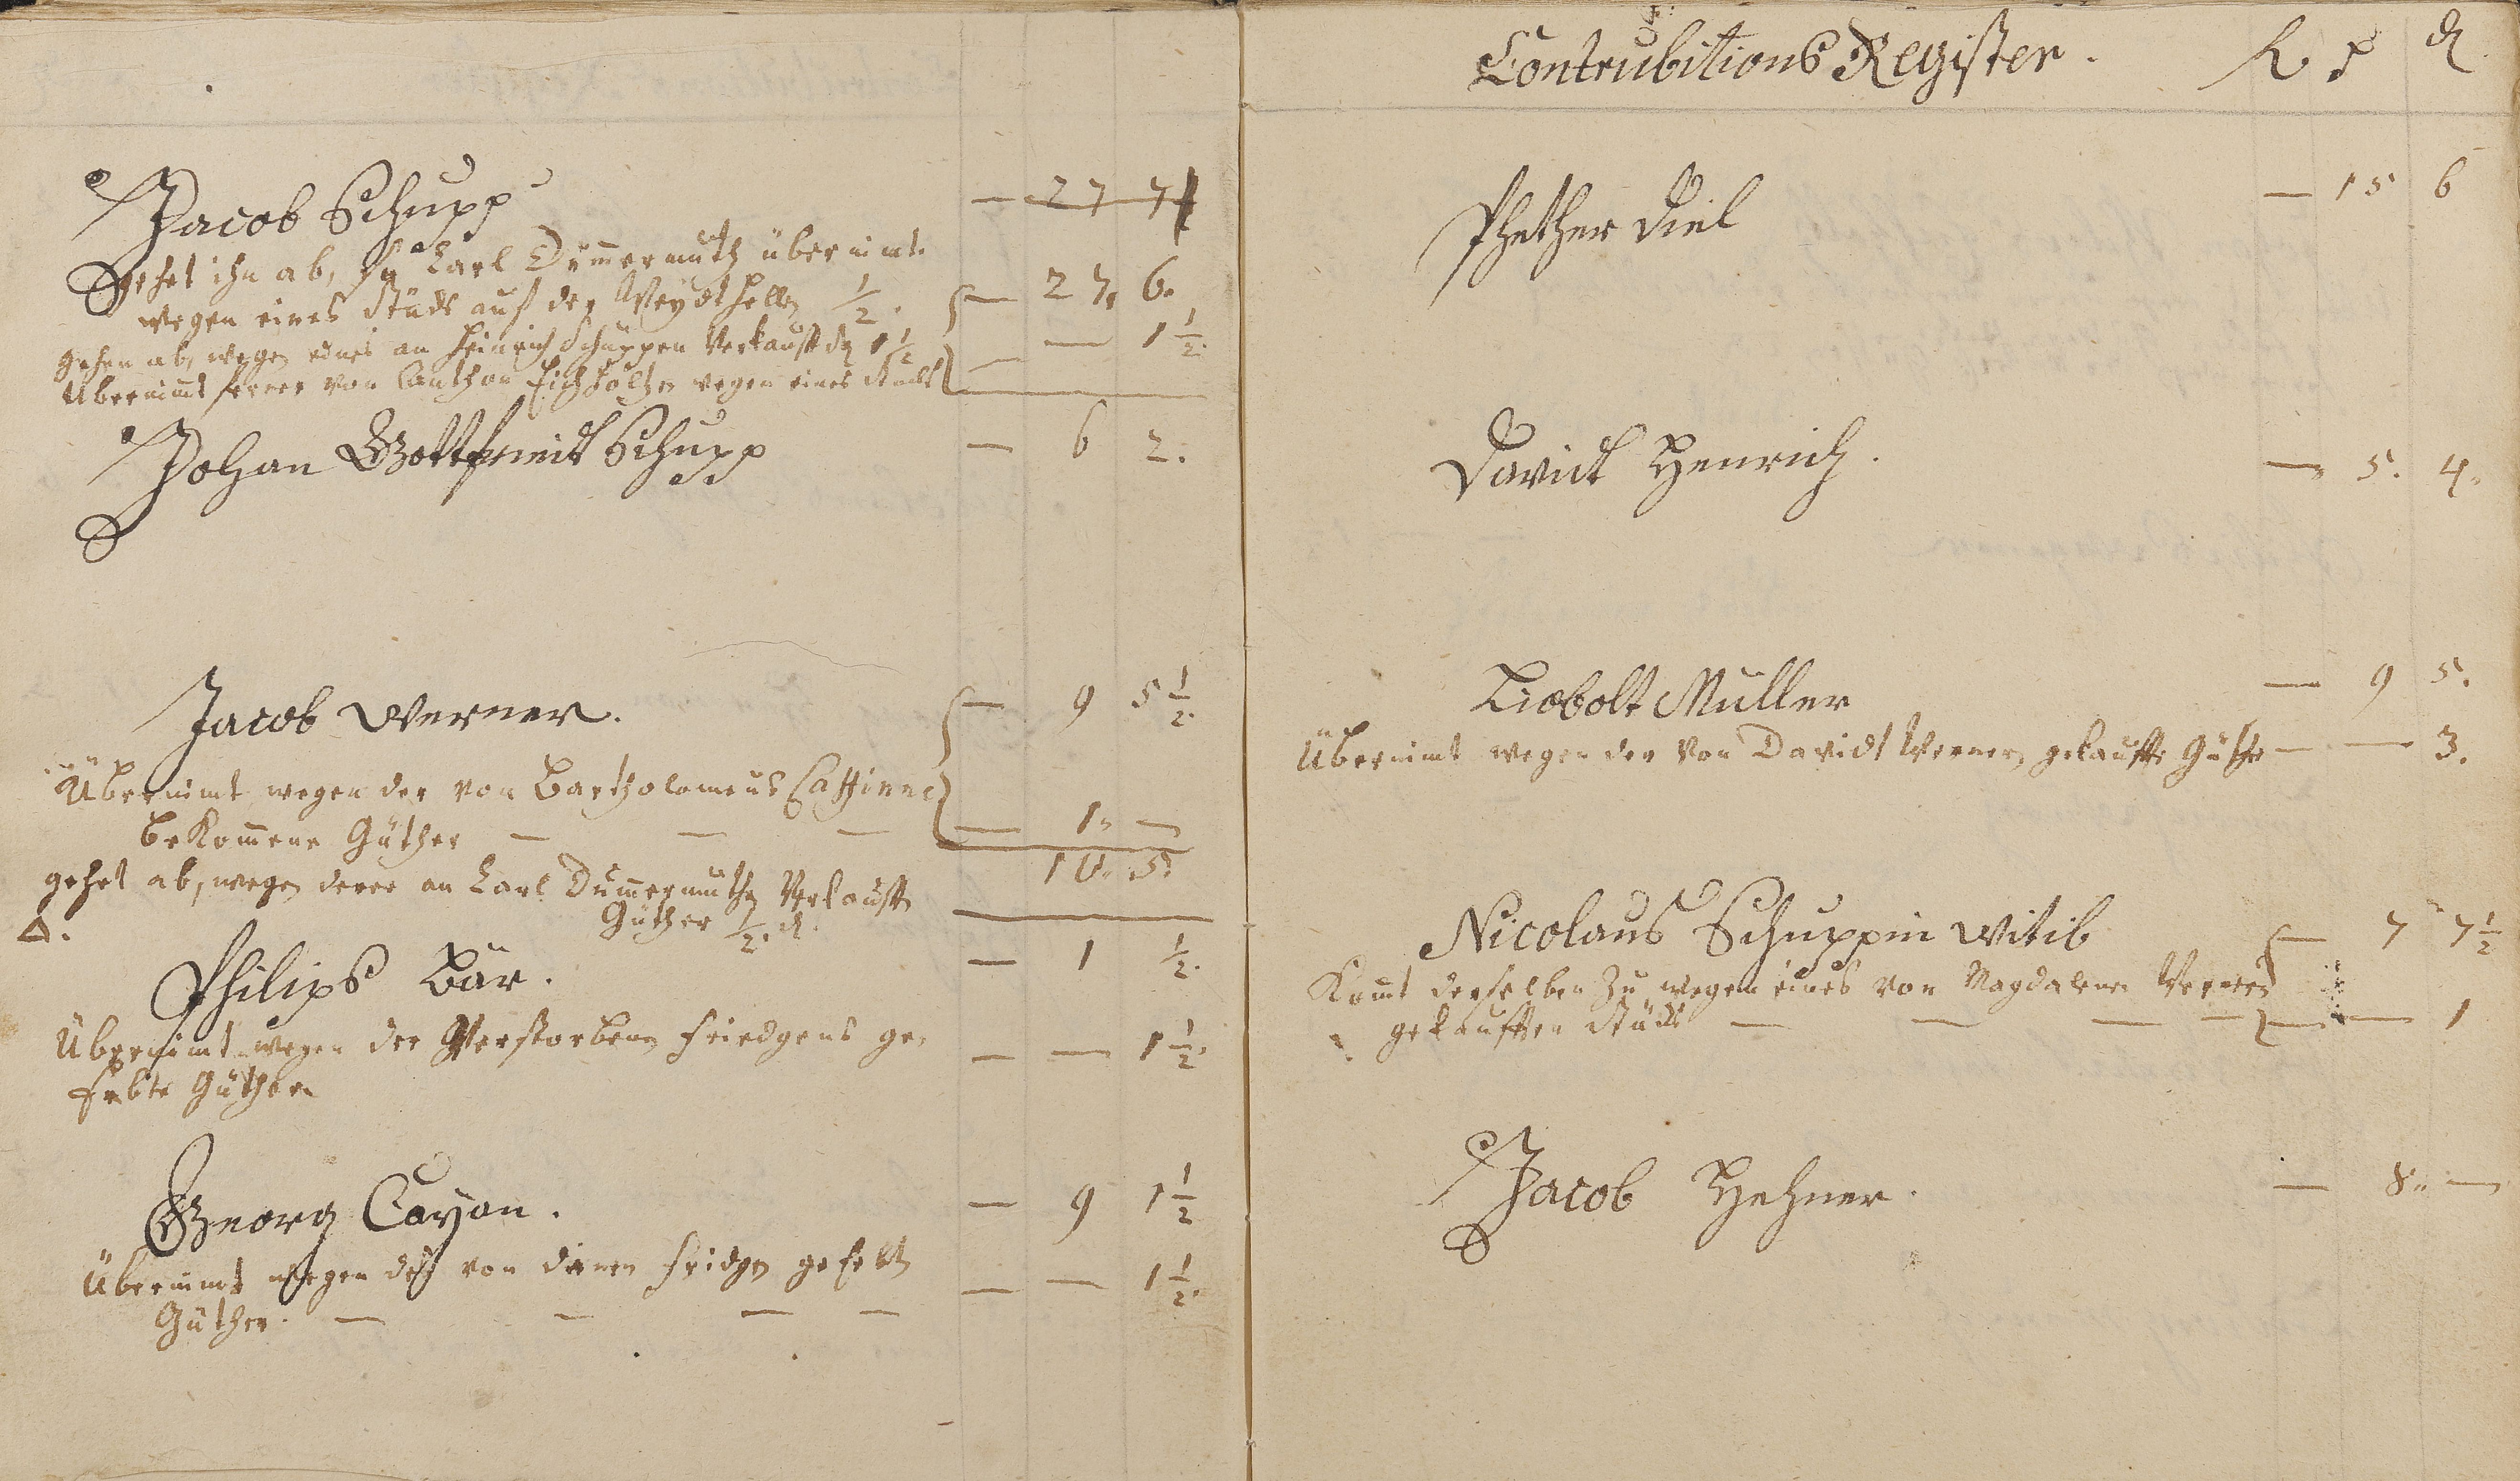 Jacob Schupp — 27 7
gehet ihn ab, so Carl Dummermuth übernimt.
wegen eines Stücks auf der Weydthellen ½. — 27. 6.
gehen ab, wegen eines an Heinrich Schuppen Verkauft 1½ — 1½.
Übernimt ferner von Anthon Eichholtzen wegen eines Stücks —
Johan Gottfriedt Schupp — 6 2.
Jacob Werner. — 9 5½.
Übernimt wegen der von Bartholomeus
bekommene Güther — — — — 1. —
10. 5.
gehet ab, wegen derer an Carl Dummermuth Verkaufte
Güther ½. d.
Philips Bär. — 1 ½.
Übernimt wegen der Verstorbene Friedgens ge-
Erbte Güther — — 1½.
Georg Cayan. — 9 1½
Übernimt wegen der von Fridgen geErbte
Güther. — — — — — — 1½.
Contrubitions Register.
Phether Diel — 15 6
Davidt Henrich. — 5. 4.
Liobolt Müller — 9 5.
Übernimt wegen der von Davidt Werner gekaufte Güther — — 3.
Nicolaus Schuppin Witib — 7 7½
Komt derselben Zu wegen eines von Magdalena Werner
gekauften Stücks — — — — — — 1
Jacob Hehner. — 8. —